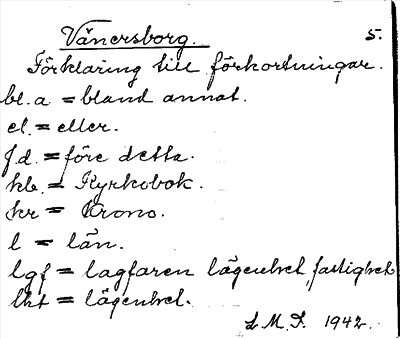 Vänersborg. 5.
Förklaring till förkortningar.
bl. a = bland annat.
el. = eller.
f.d. = före detta.
kb. = Kyrkobok.
kr = Krono.
l = län.
lgf = lagfaren lägenhet, fastighet
lht = lägenhet.
L. M. F. 1942.